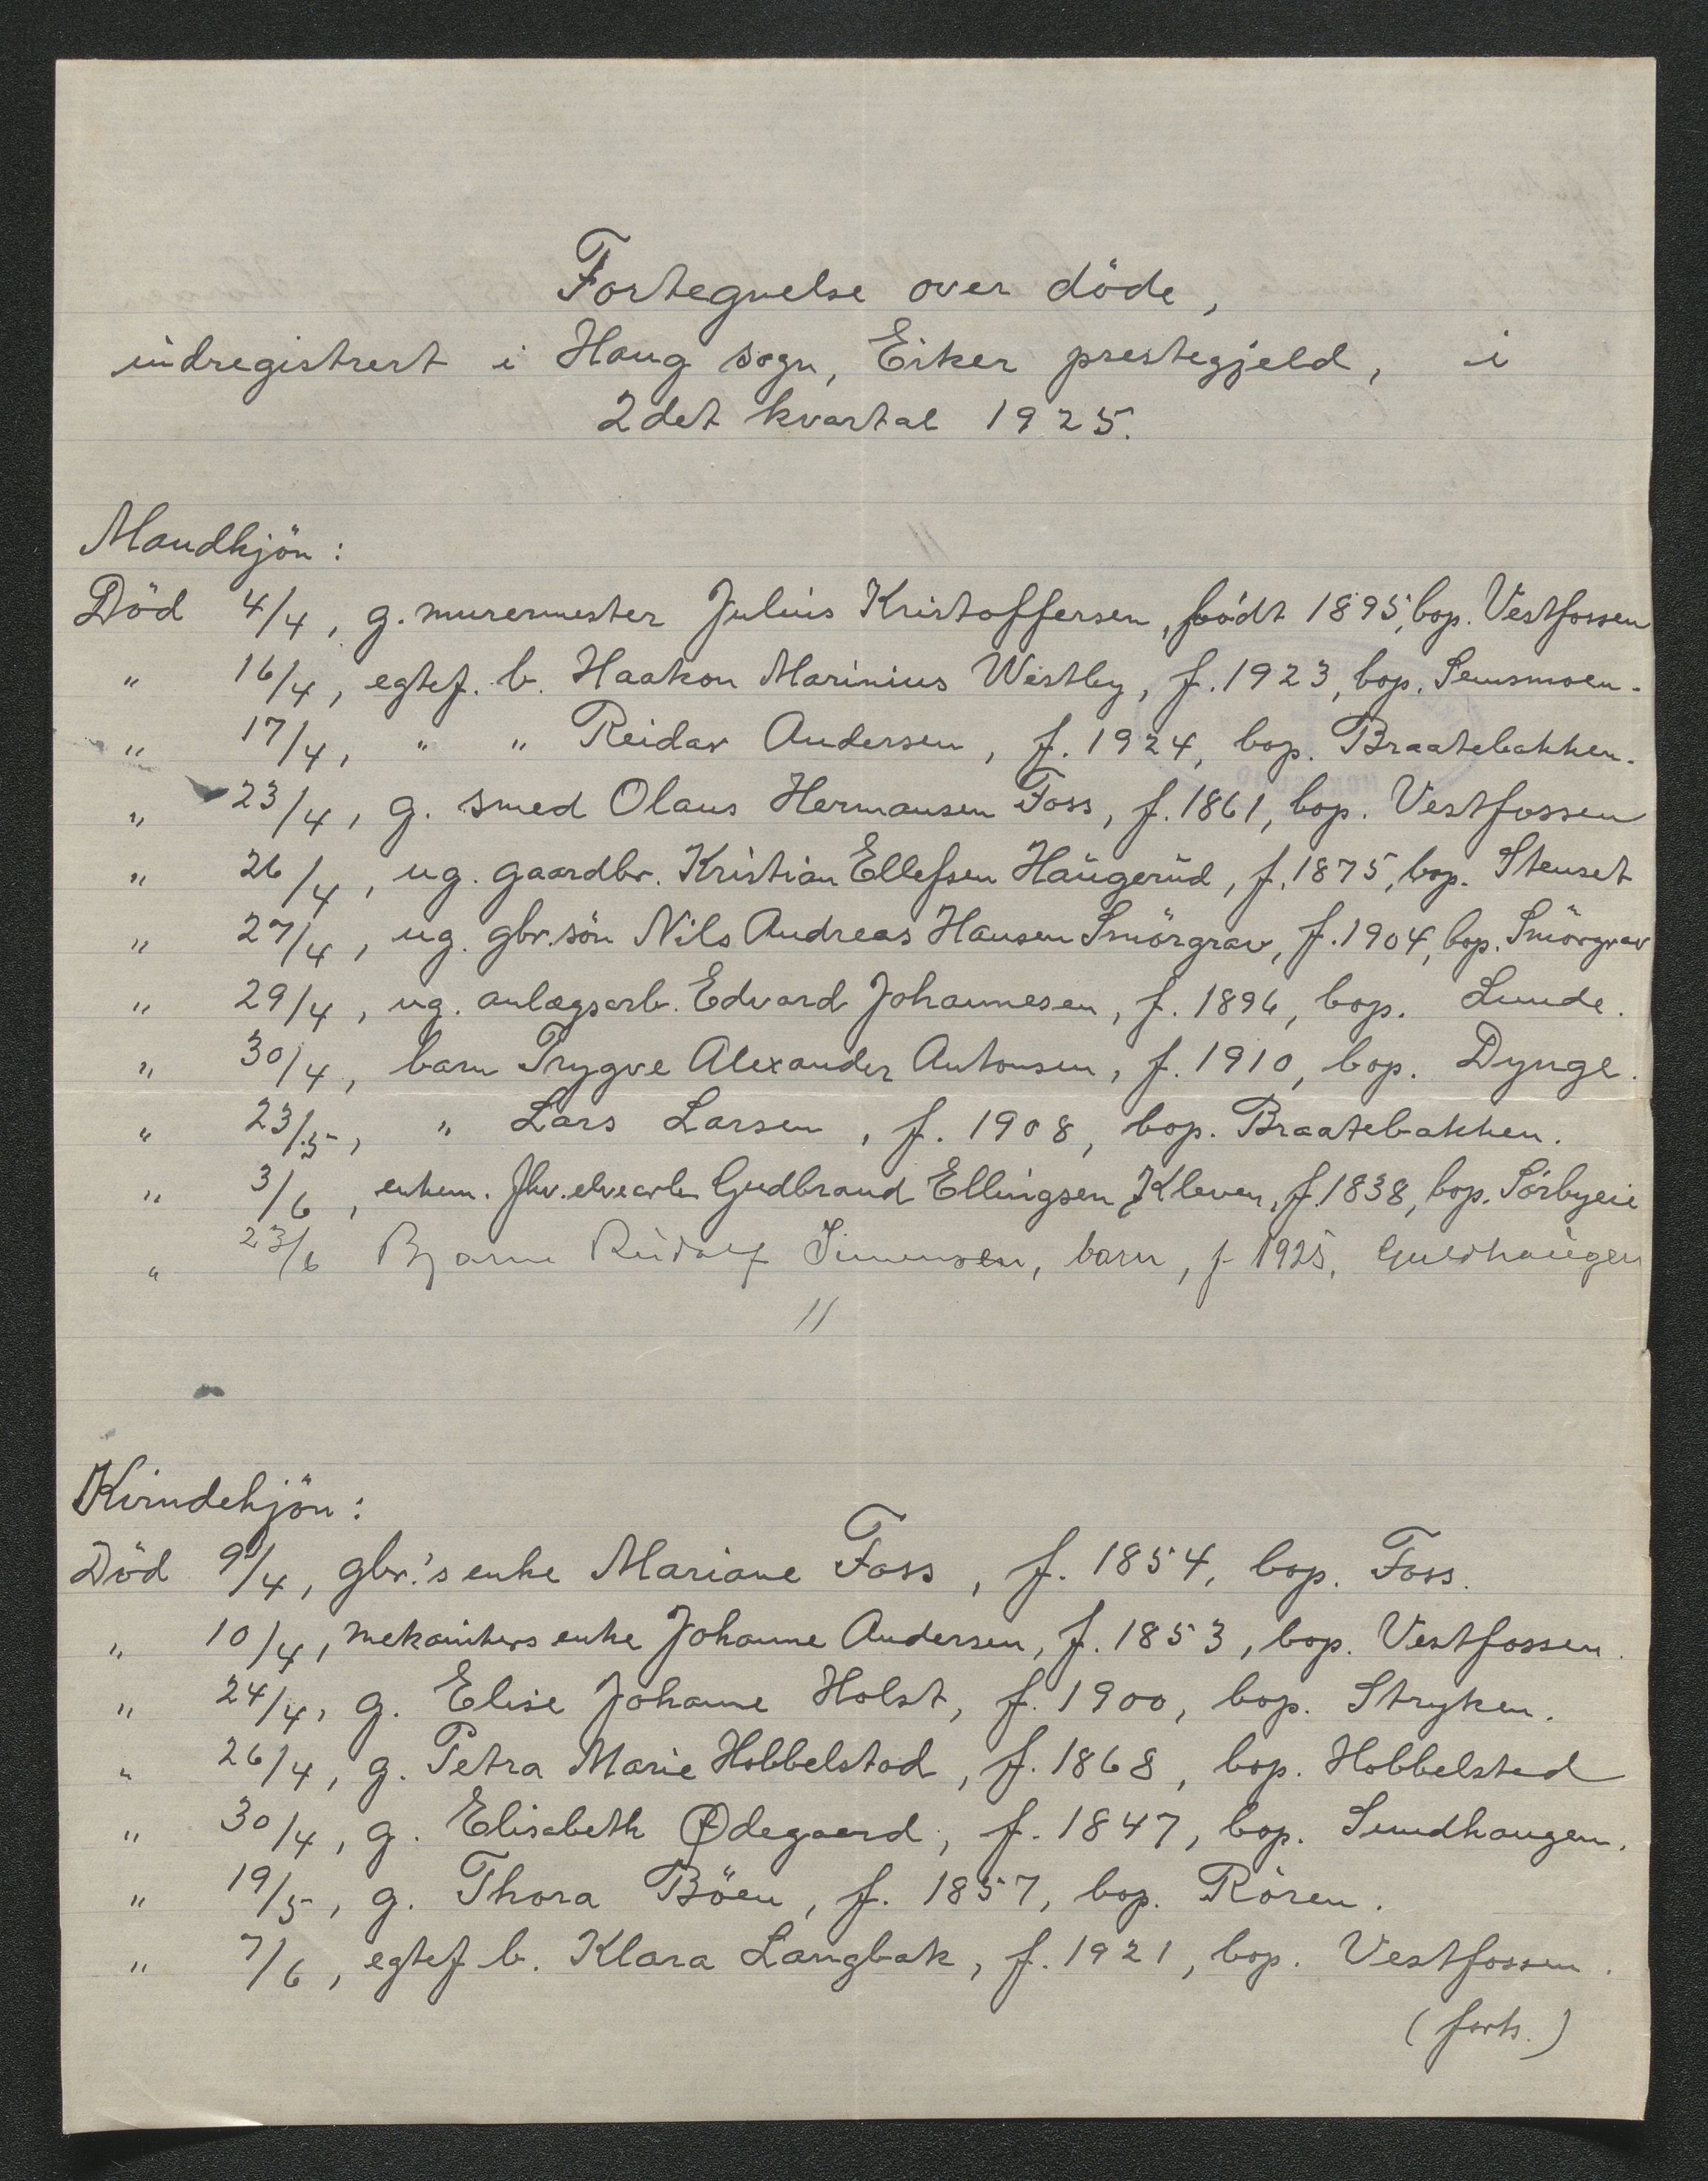 Fortegnelse over döde,
indregistrert i Haug sogn, Eiker prestegjeld, i
2det kvartal 1925.
Mandkjön:
Död 4/4, g. murermester Julius Kristoffersen, födt 1895, bop. Vestfossen
" 16/4, egtef. b. Haakon Marinius Westby, f. 1923, bop. Semsmoen.
" 17/4, " " Reidar Andersen, f. 1924, bop. Braatebakken.
" 23/4, g. smed Olaus Hermansen Foss, f. 1861, bop. Vestfossen
" 26/4, ug. gaardbr. Kristian Ellefsen Haugerud, f. 1875, bop. Stenset
" 27/4, ug. gbr. sön Nils Andreas Hansen Smörgrav, f. 1904, bop. Smörgrav
" 29/4, ug. anlægsarb. Edvard Johannesen, f. 1896, bop. Lunde.
" 30/4, barn Trygve Alexander Antonsen, f. 1910, bop. Dynge.
" 23/5, " Lars Larsen, f. 1908, bop. Braatebakken.
" 3/6, enkem. fhv. elvearb. Gudbrand Ellingsen Kleven, f. 1838, bop. Sörbyeie
" 23/6 Bjarne Rudolf Simensen, barn, f 1925, Guldhaugen
11
Kvindekjön:
Död 9/4, gbr.'s enke Mariane Foss, f. 1854, bop. Foss.
" 10/4, mekanikers enke Johanne Andersen, f. 1853, bop. Vestfossen.
" 24/4, g. Elise Johanne Holst, f. 1900, bop. Stryken.
" 26/4, g. Petra Marie Hobbelstad, f. 1868, bop. Hobbelstad
" 30/4, g. Elisabeth Ødegaard, f. 1847, bop. Sundhaugen.
" 19/5, g. Thora Böen, f. 1857, bop. Rören.
" 7/6, egtef b. Klara Langbak, f. 1921, bop. Vestfossen.
(forts.)